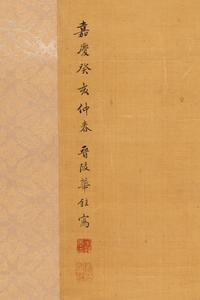 嘉慶癸亥仲春 晉陵華鈺寫